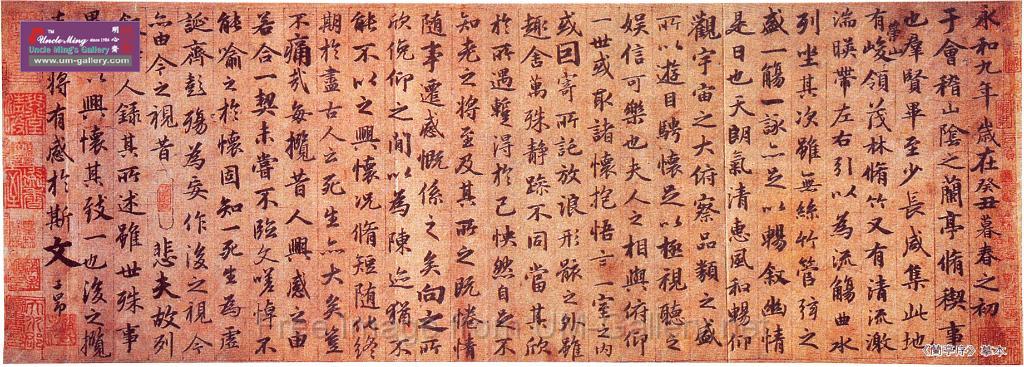 永和九年歲在癸丑暮春之初
于會稽山陰之蘭亭脩稧事
也羣賢畢至少長咸集此地
有崇山峻領茂林脩竹又有清流激
湍暎帶左右引以為流觴曲水
列坐其次雖無絲竹管弦之
盛一觴一詠亦足以暢叙幽情
是日也天朗氣清惠風和暢仰
觀宇宙之大俯察品類之盛
所以遊目騁懷足以極視聽之
娛信可樂也夫人之相與俯仰
一世或取諸懷抱悟言一室之内
或因寄所託放浪形骸之外雖
趣舍萬殊静躁不同當其欣
於所遇蹔得於己怏然自足不
知老之將至及其所之既惓情
随事遷感慨係之矣向之所
欣俛仰之間以為陳迹猶不
能不以之興懷况脩短随化終
期於盡古人云死生亦大矣豈
不痛哉每攬昔人興感之由
若合一契未嘗不臨文嗟悼不
能喻之於懷固知一死生為虛
誕齊彭殤為妄作後之視今
亦由今之視昔悲夫故列
人録其所述雖世殊事
異所以興懷其致一也後之攬
亦將有感於斯文子昂
Uncle Ming since 1984
明心齋
Uncle Ming's Gallery
www.um-gallery.com
Free Image from UM-Gallery.net
《蘭亭序》摹本